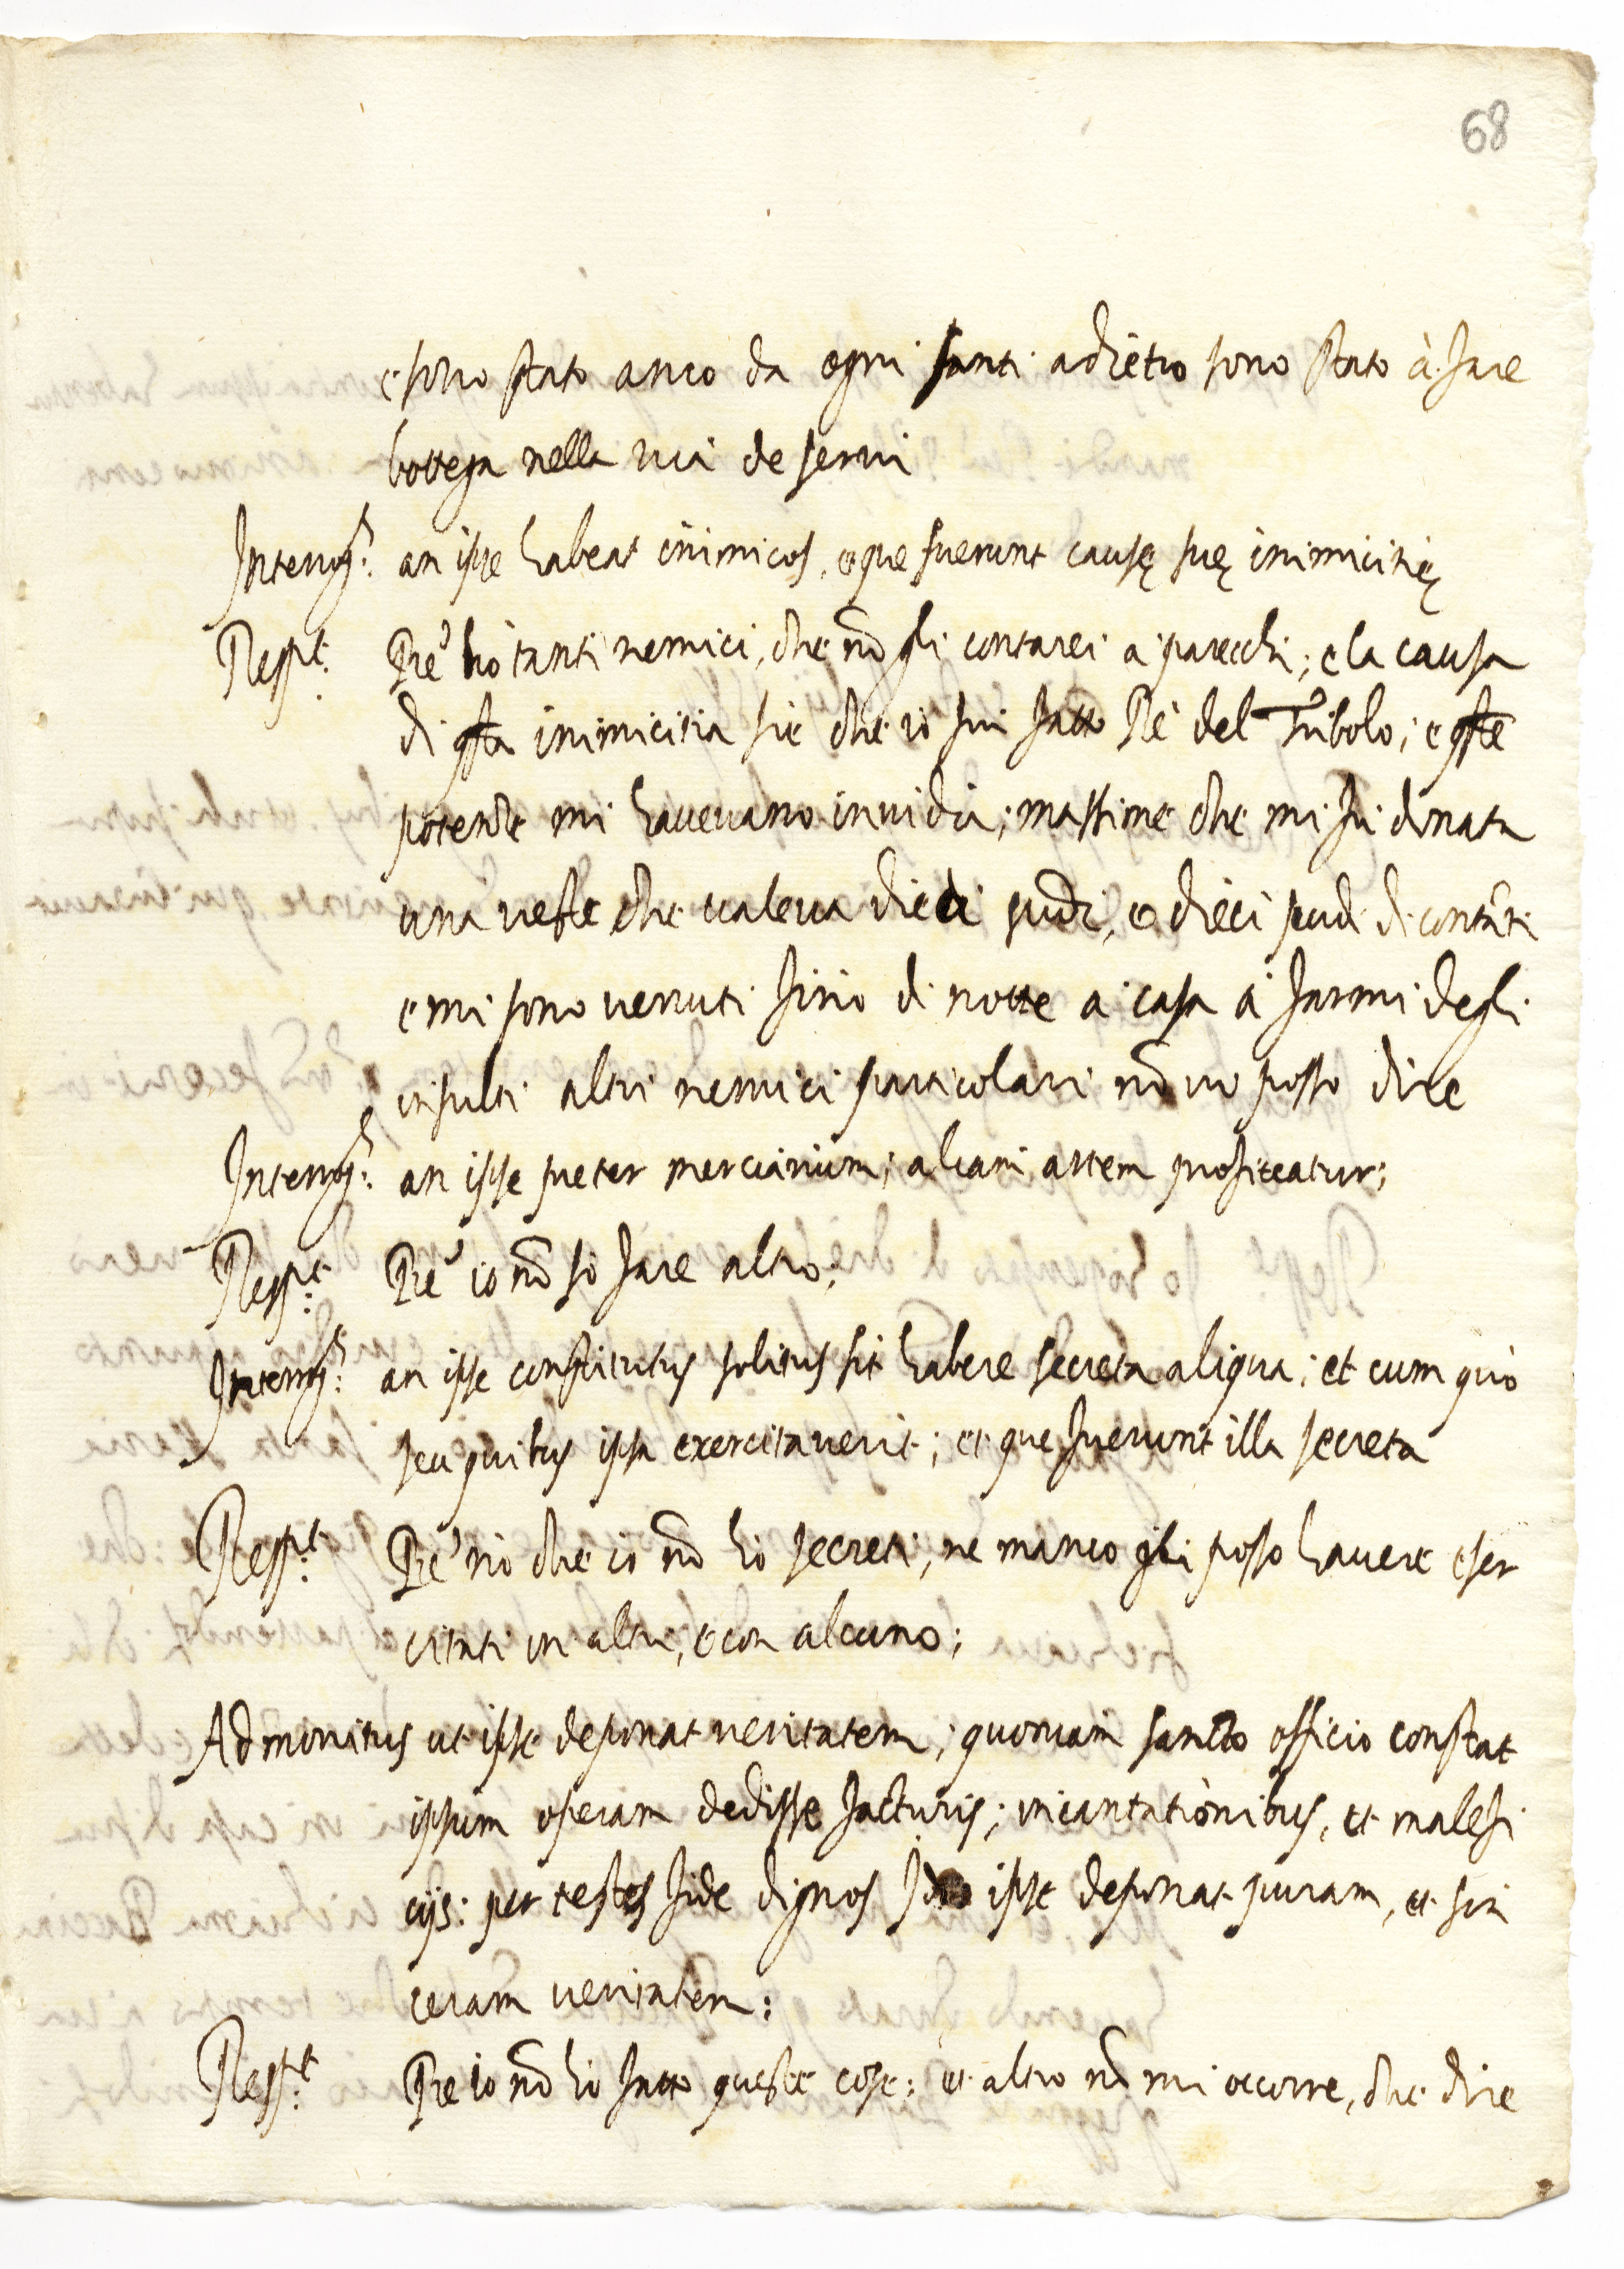 68
e sono stato anco da ogni santi adietro sono stato à fare
bottega nella via de servi
Interrog.s an ipse habeat inimicos, e que fuerunt causę suę inimicitię
Resp.t Pre' hò tanti nemici, che nō gli contarei a parecchi; e la causa
di q̄sta inimicitia sie che io fui fatto Rè del Tribolo; e q̄ste
potenze mi havevano invidia; massime che mi fu donata
una veste che valeva dieci scudi, e dieci scudi di contāti
e mi sono venuti sino di notte a casa à farmi degli
insulti altri nemici particolari nō vi posso dire
Interrog.s an ipse preter merciarium; aliam artem profiteatur;
Resp.t Pre' io nō so fare altro,
Interrog.s an ipse constitutus solitus sit habere secreta aliqua; et cum quò
seu quibus ipsa exercitaverit; et que fuerunt illa secreta
Resp.t Pre' nò che io nō hò secreti, ne manco gli posso havere eser
citati in altri, e con alcuno;
Admonitus ut ipse deponat veritatem; quoniam sancto officio constat
ipsum operam dedisse facturis; incantationibus, et malefi
cijs: per testes fide dignos ipse deponat puram, et sin
ceram veritatem:
Resp.t Pre io nō hò fatto queste cose: et altro nō mi occorre, che dire